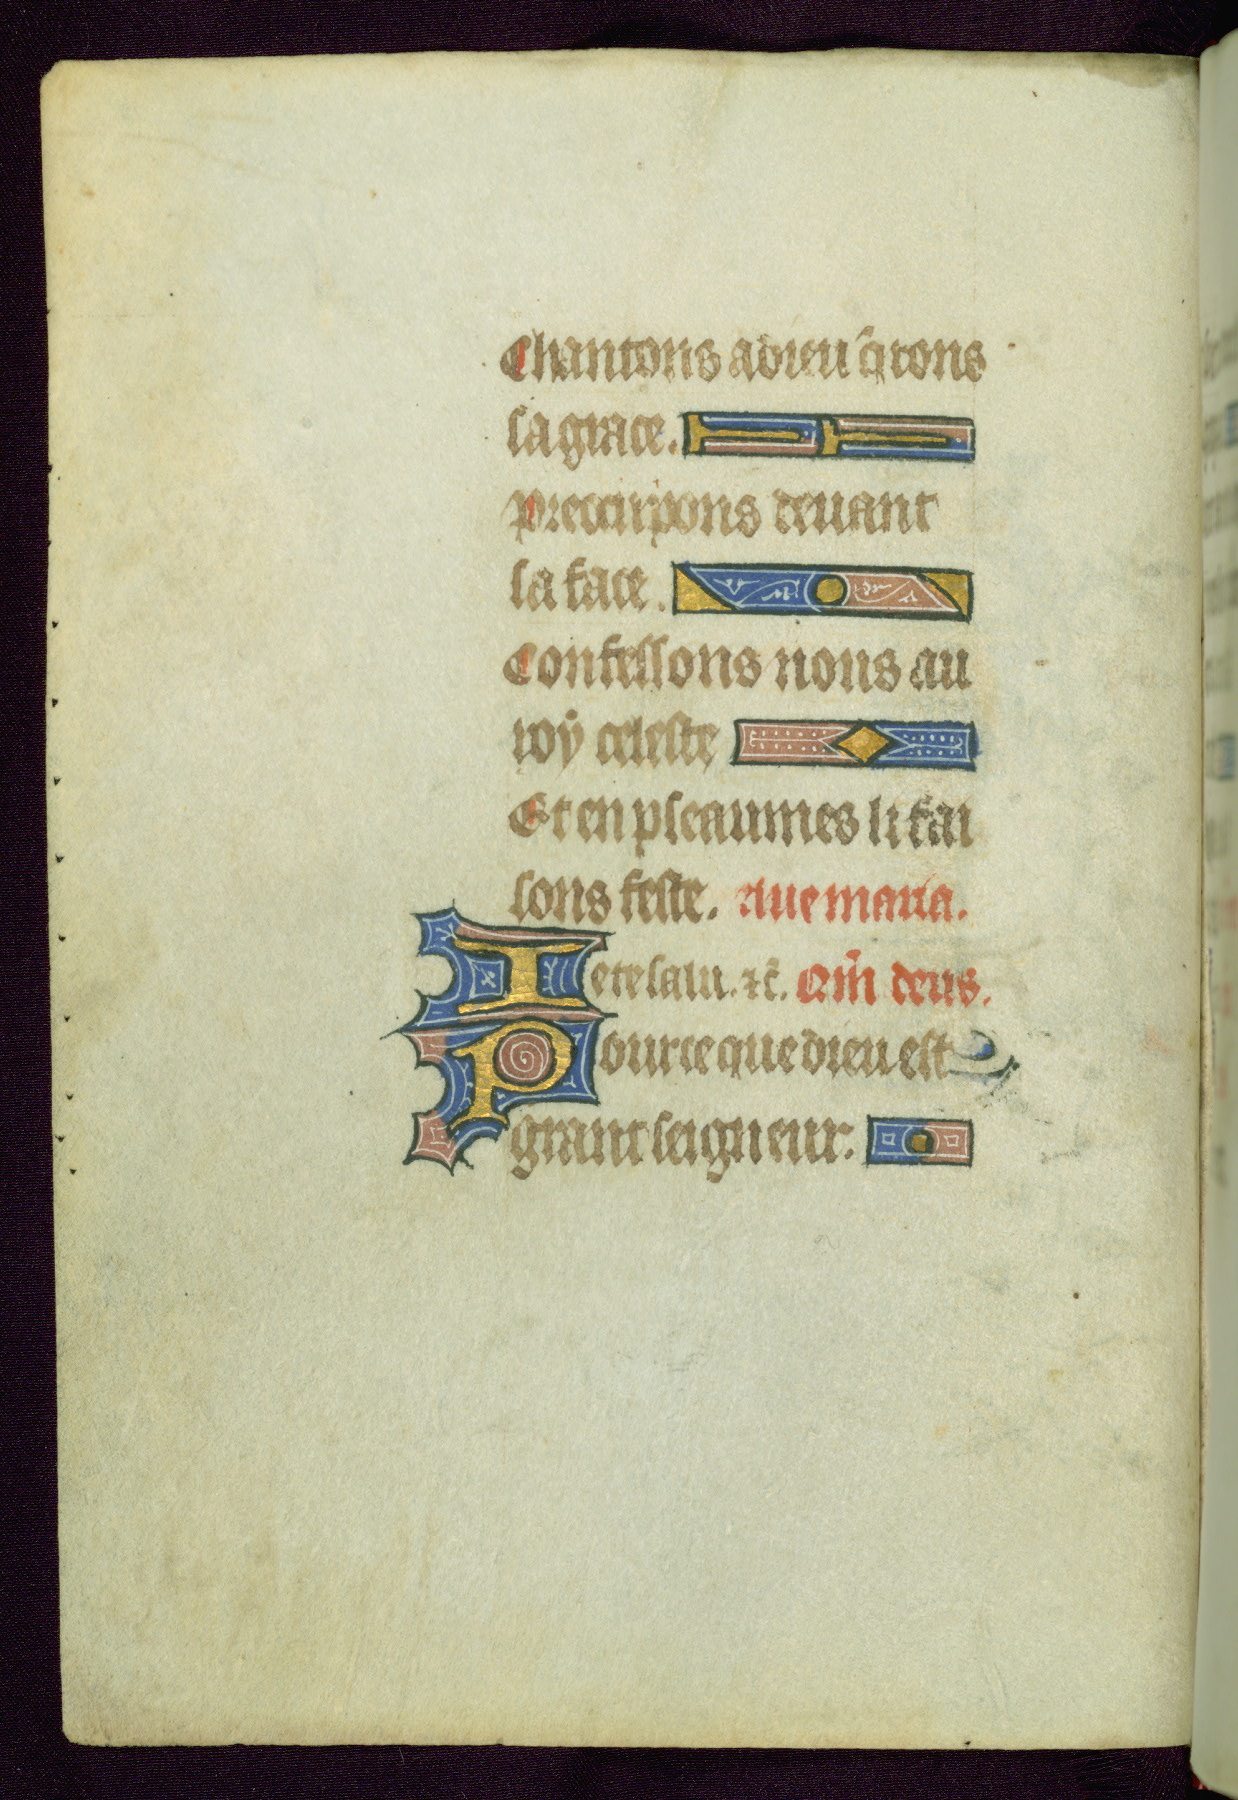 Chantons a dieu q̃rons
sa grace.
Preoccupons deuant
sa face.
Confessons nous au
roy celeste
Et en pseaumes li fai
sons feste. Aue maria.
Ie te salu. ⁊c̃. Qm̃ deus.
Pour ce que dieu est
grant seigneur.